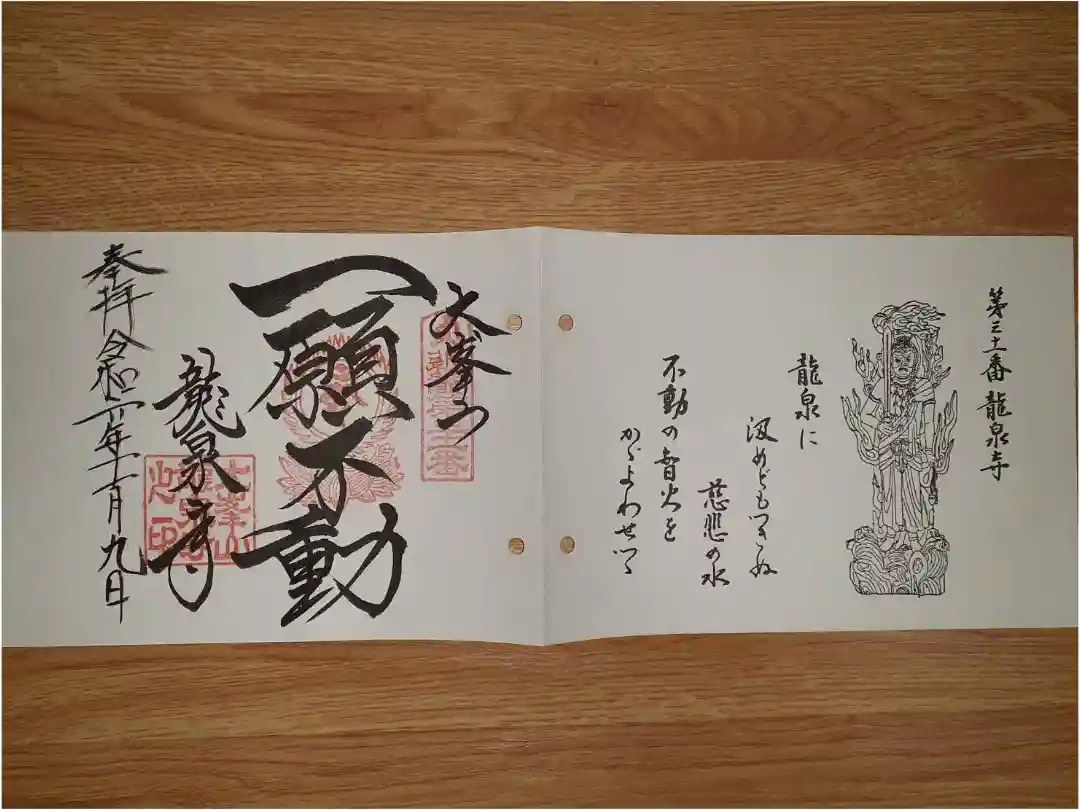 第三十一番 龍泉寺
龍泉に
汲めどもつきぬ
慈悲の水
不動の智火を
かゞよわせつゝ
大峯山
一願不動
龍泉寺
奉拝 令和二年十一月九日